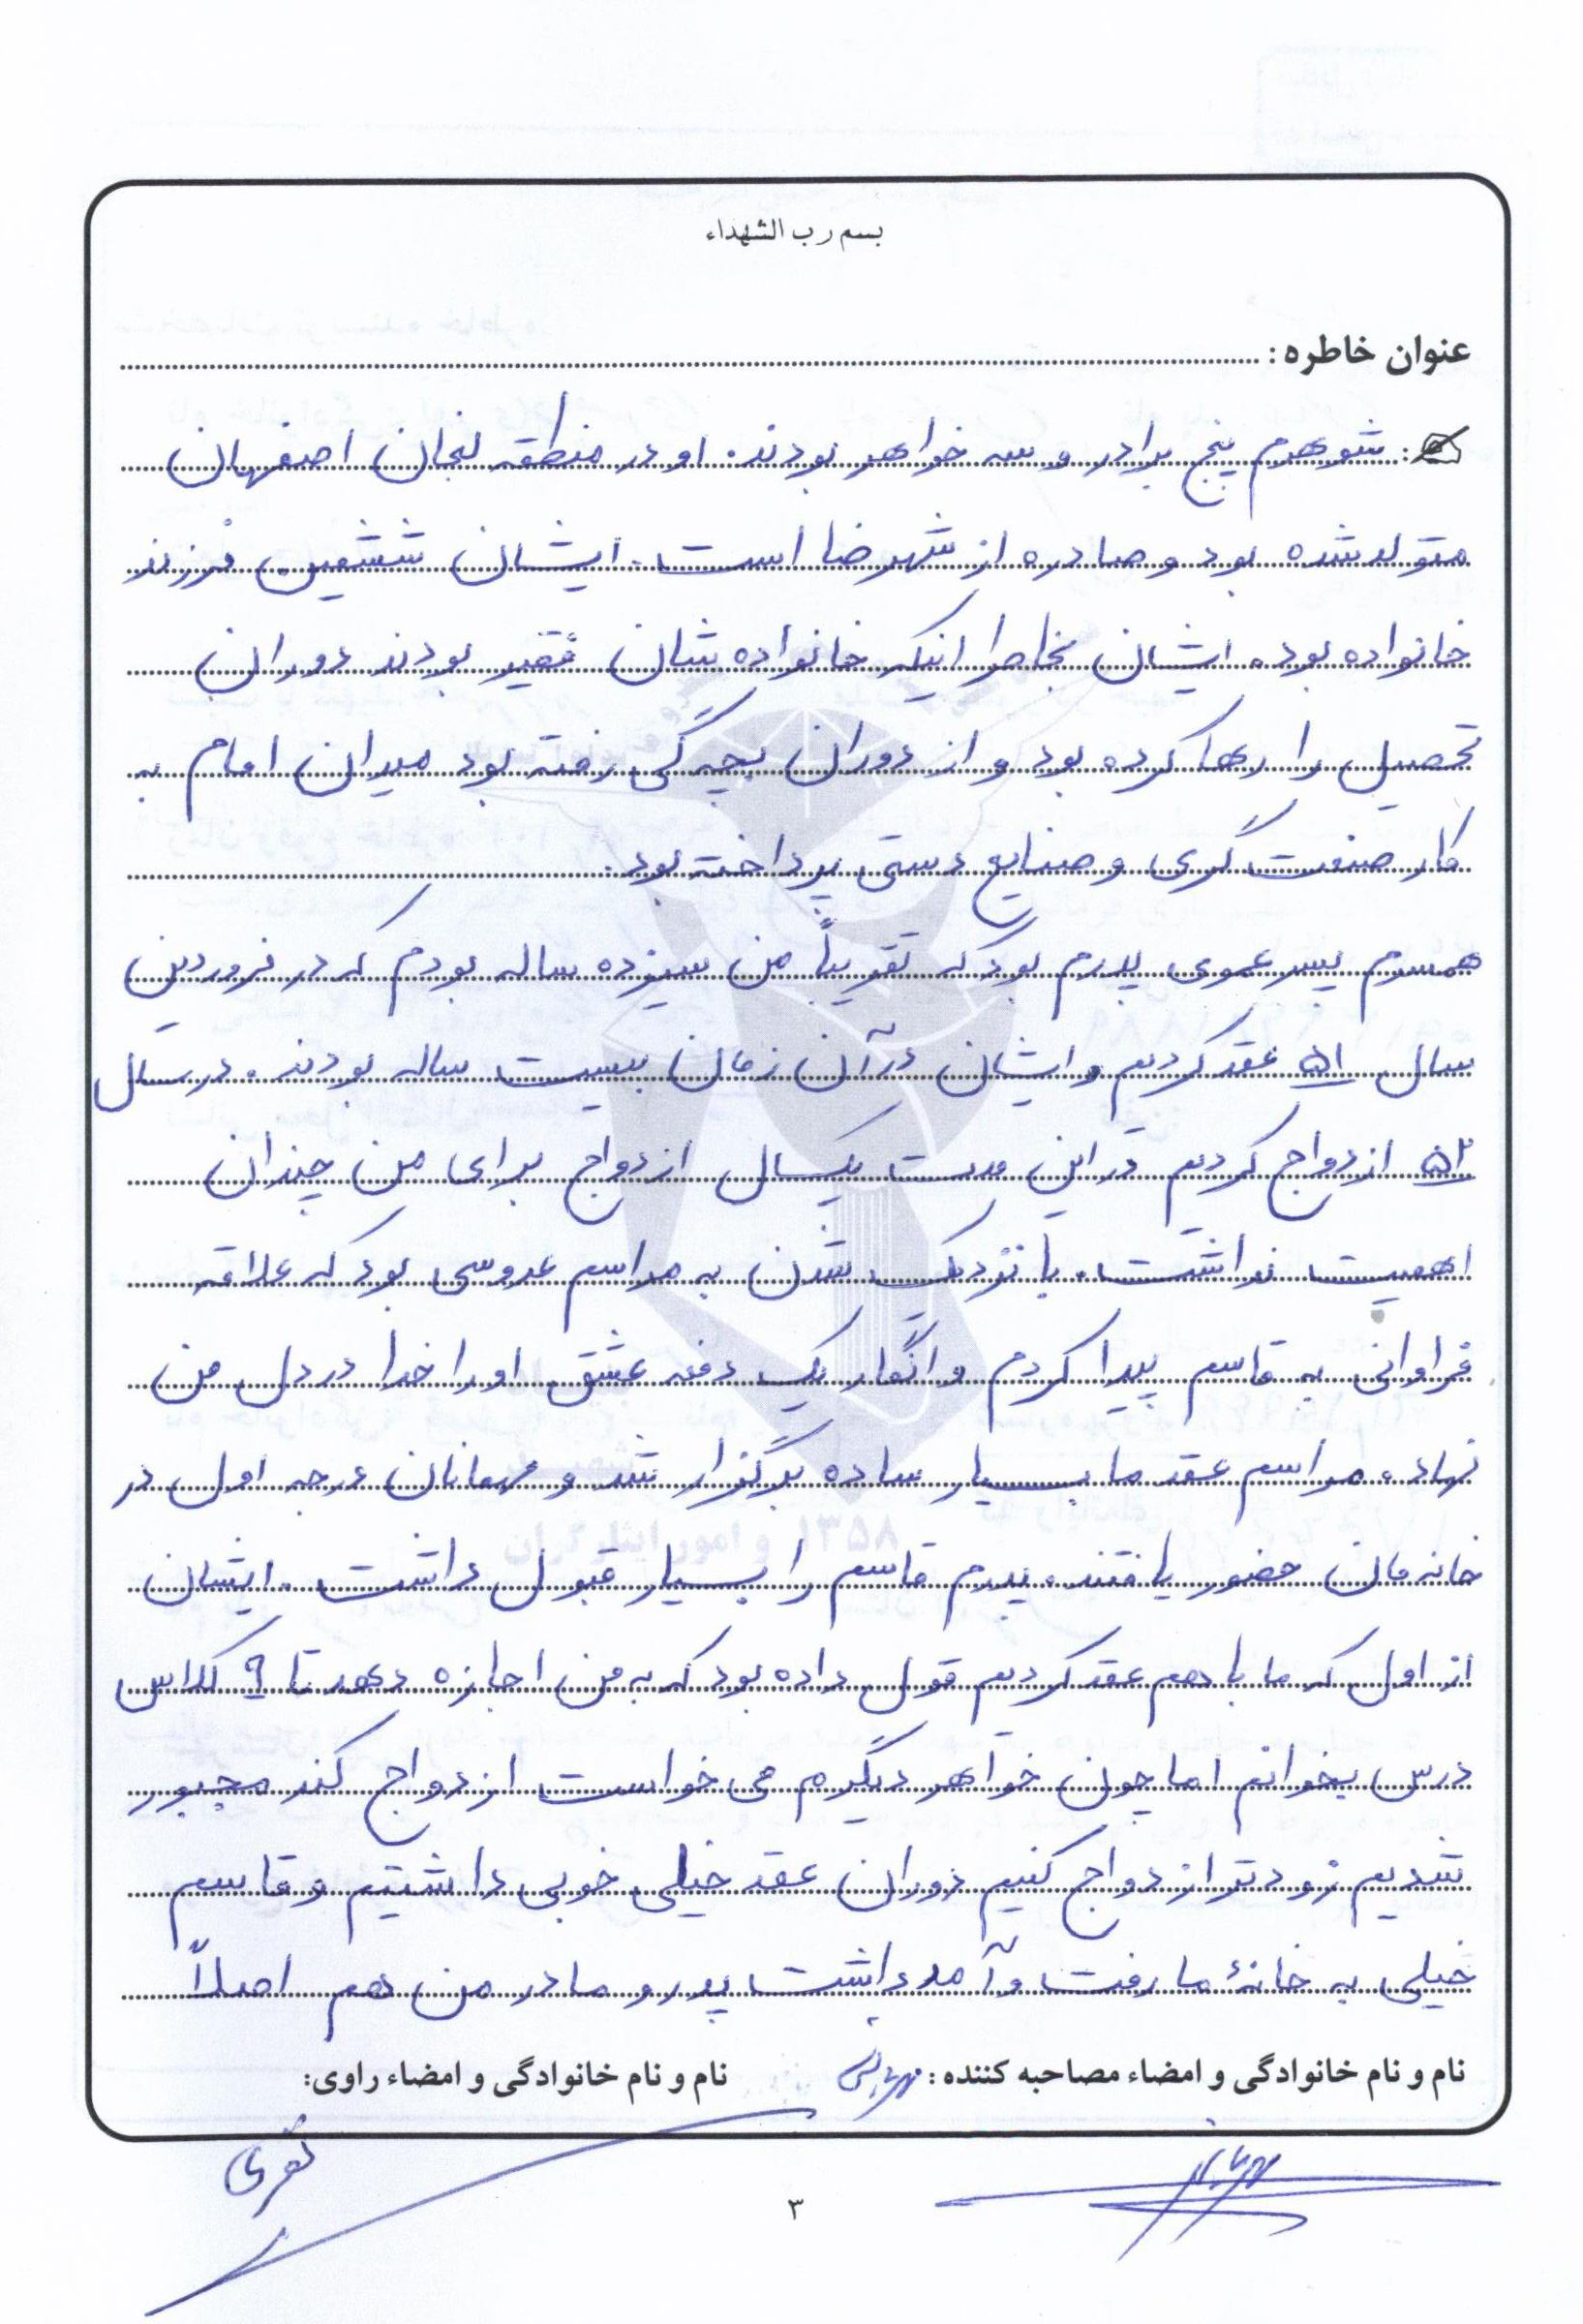 بسم رب الشهداء
عنوان خاطره :
: شوهرم پنج برادر و سه خواهر بودند. او در منطقه لنجان اصفهان
متولد شده بود و صادره از شهرضا است. ایشان ششمین فرزند
خانواده بود. ایشان بخاطر اینکه خانواده شان فقیر بودند دوران
تحصیل را رها کرده بود و از دوران بچه گی رفته بود میدان امام به
کار صنعت گری و صنایع دستی پرداخته بود.
همسرم پسر عموی پدرم بود که تقریباً من سیزده ساله بودم که در فروردین
سال ۵۱ عقد کردیم و ایشان در آن زمان بیست ساله بودند. در سال
۵۲ ازدواج کردیم در این مدت یکسال ازدواج برای من چندان
اهمیت نداشت. با نزدیک شدن به مراسم عروسی بود که علاقه
فراوانی به قاسم پیدا کردم و انگار یک دفعه عشق او را خدا در دل من
نهاد. مراسم عقد ما بسیار ساده برگزار شد و مهمانان درجه اول در
خانه مان حضور یافتند. پدرم قاسم را بسیار قبول داشت. ایشان
از اول که ما با هم عقد کردیم قول داده بود که به من اجازه دهد تا ۹ کلاس
درس بخوانم اما چون خواهر دیگرم می خواست ازدواج کند مجبور
شدیم زودتر ازدواج کنیم دوران عقد خیلی خوبی داشتیم و قاسم
خیلی به خانهٔ ما رفت و آمد داشت پدر و مادر من هم اصلاً
نام و نام خانوادگی و امضاء مصاحبه کننده :
نام و نام خانوادگی و امضاء راوی:
۳